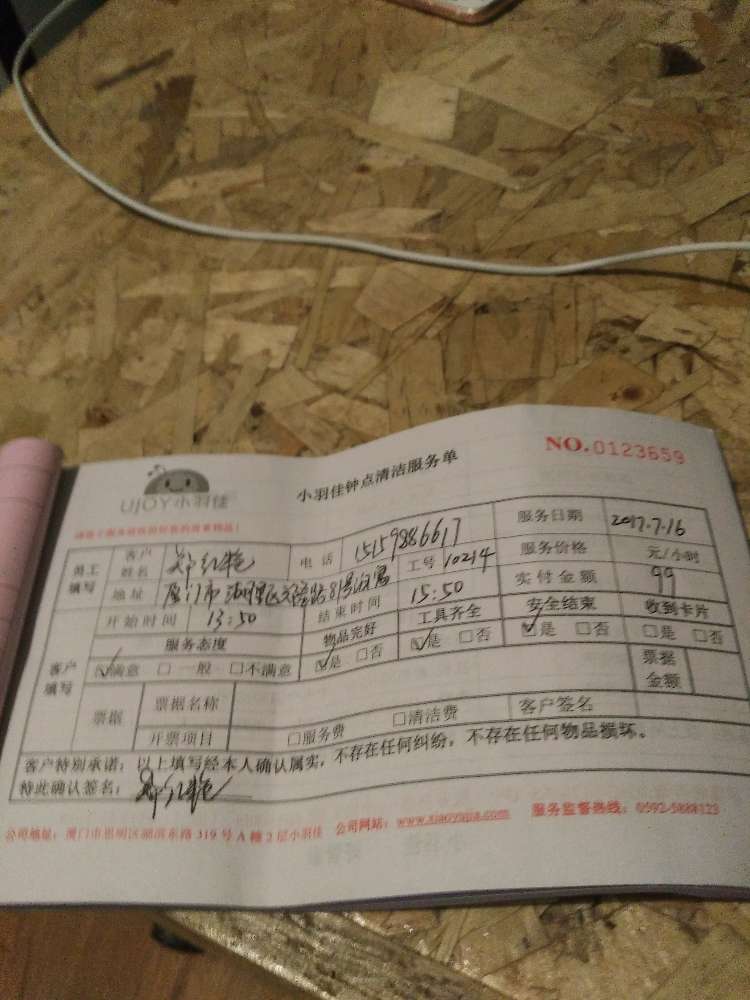 UJOY小羽佳
小羽佳钟点清洁服务单
NO.0123659
员工填写 客户姓名 郑红艳 电话 15159886617 服务日期 2017.7.16
地址 厦门市湖里区 工号 10214 服务价格 元/小时
开始时间 13:50 结束时间 15:50 实付金额 99
客户填写 服务态度 物品完好 工具齐全 安全结束 收到卡片
☑满意 □一般 □不满意 ☑是 □否 ☑是 □否 ☑是 □否 □是 □否
票据 票据名称 票据金额
开票项目 □服务费 □清洁费 客户签名
客户特别承诺：以上填写经本人确认属实，不存在任何纠纷，不存在任何物品损坏。
特此确认签名：郑红艳
公司地址：厦门市思明区湖滨东路319号A幢2层小羽佳 公司网站：www.xiaoyujia.com 服务监督热线：0592-5884123